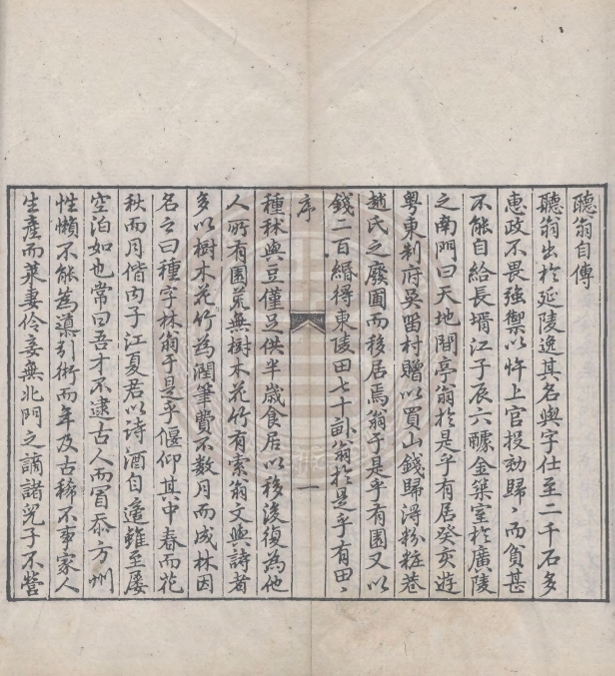 聽翁自傳
聽翁出於延陵逸其名與字仕至二千石多
惠政不畏強禦以忤上官投劾歸〻而負甚
不能自給長壻江子辰六醵金築室於廣陵
之南門曰天地間亭翁於是乎有居癸亥遊
粵東制府吳留村贈以買山錢歸淂粉粧巷
趙氏之廢圃而移居焉翁于是乎有園又以
錢二百緡得東陵田七十畝翁於是乎有田〻
序
一
種秫與豆僅足供半歲食居以移後復為他
人所有園荒無樹木花竹有索翁文與詩者
多以樹木花竹為潤筆費不數月而成林因
名之曰種字林翁于是乎偃仰其中春而花
秋而月偕內子江夏君以詩酒自適雖至屢
空泊如也常曰吾才不逮古人而冒忝方州
性懶不能為導引術而年及古稀不事家人
生產而萊妻伶妾無北門之謫諸兒子不營